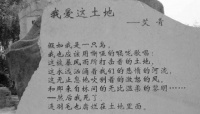 我爱这土地
——艾青
假如我是一只鸟，
我也应该用嘶哑的喉咙歌唱：
这被暴风雨所打击着的土地，
这永远汹涌着我们的悲愤的河流，
这无止息地吹刮着的激怒的风，
和那来自林间的无比温柔的黎明……
——然后我死了，
连羽毛也腐烂在土地里面。